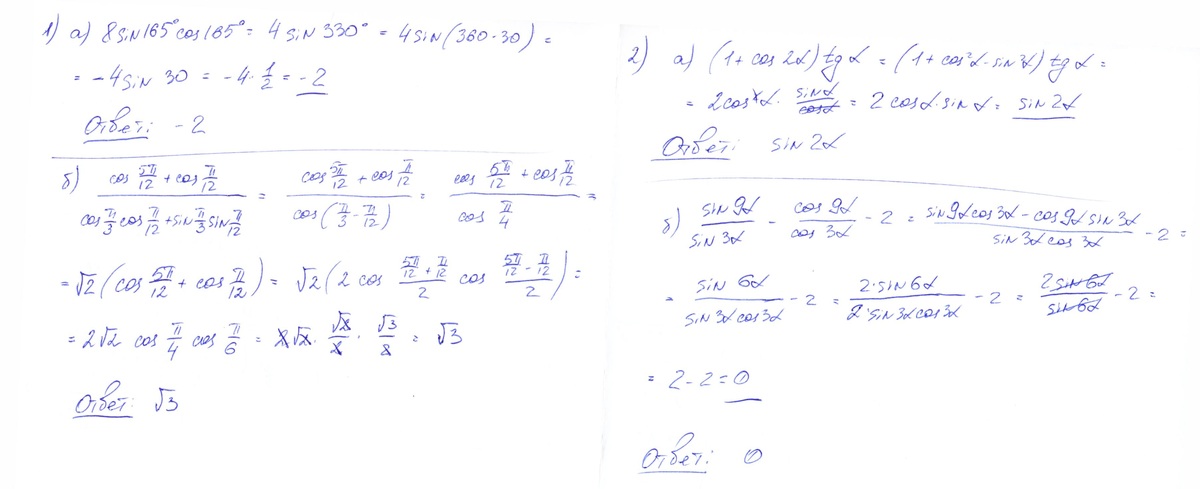 1) а) 8sin165°cos165° = 4sin330° = 4sin(360-30) =
= -4sin30 = -4·1/2 = -2
Ответ: -2
б) (cos 5π/12 + cos π/12)/(cos π/3 cos π/12 + sin π/3 sin π/12) = (cos 5π/12 + cos π/12)/(cos(π/3 - π/12)) = (cos 5π/12 + cos π/12)/(cos π/4) =
= √2(cos 5π/12 + cos π/12) = √2(2cos (5π/12 + π/12)/2 cos (5π/12 - π/12)/2) =
= 2√2 cos π/4 cos π/6 = 2√2 · √2/2 · √3/2 = √3
Ответ: √3
2) а) (1 + cos2α)tgα = (1 + cos²α - sin²α)tgα =
= 2cos²α · sinα/cosα = 2cosα·sinα = sin2α
Ответ: sin2α
б) sin9α/sin3α - cos9α/cos3α - 2 = (sin9αcos3α - cos9αsin3α)/(sin3αcos3α) - 2 =
= sin6α/(sin3αcos3α) - 2 = 2·sin6α/(2·sin3αcos3α) - 2 = 2sin6α/sin6α - 2 =
= 2 - 2 = 0
Ответ: 0